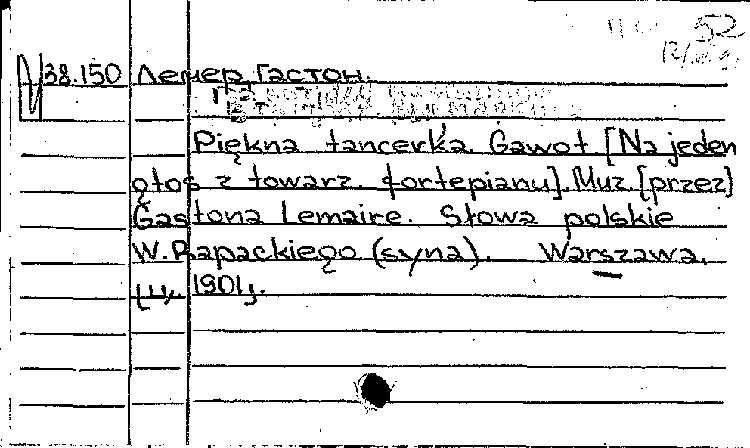 52
38.150 Лемер, Гастон.
Piękna tancerka. Gawot [Na jeden
głos z towarz. fortepianu]. Muz. [przez]
Gastona Lemaire. Słowa polskie
W. Rapackiego (syna). Warszawa,
[ц. 1901].